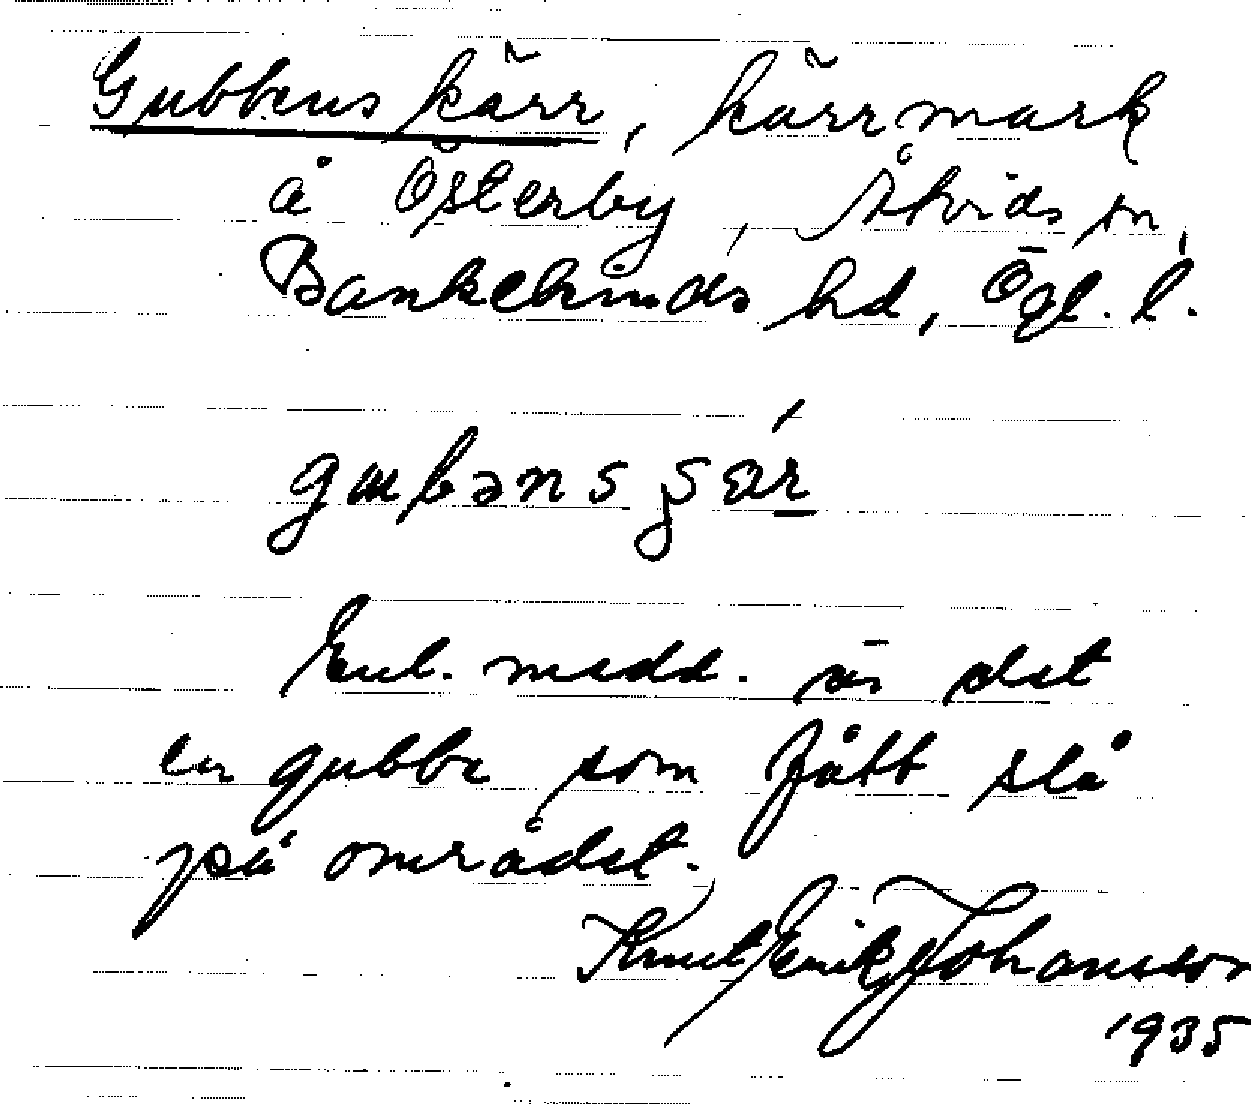 Gubbens kärr, kärrmark
å Österby, Åtvids sn,
Bankekinds hd, Ögl. l.
Enl. medd. är det
en gubbe som fått slå
på området.
Knut Erik Johansson
1935